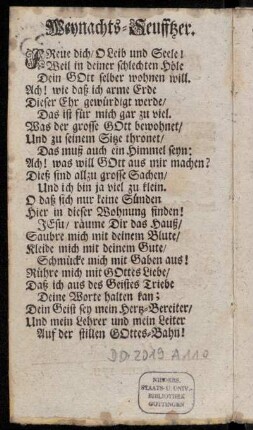 Weynachts-Seufftzer.
FReue dich/ O Leib und Seele!
Weil in deiner schlechten Höle
Dein GOtt selber wohnen will.
Ach! wie daß ich arme Erde
Dieser Ehr gewürdigt werde/
Das ist für mich gar zu viel.
Was der grosse GOtt bewohnet/
Und zu seinem Sitze thronet/
Das muß auch ein Himmel seyn:
Ach! was will GOtt aus mir machen?
Dieß sind allzu grosse Sachen/
Und ich bin ja viel zu klein.
O daß sich nur keine Sünden
Hier in dieser Wohnung finden!
JEsu/ räume Dir das Hauß/
Saubre mich mit deinem Blute/
Kleide mich mit deinem Gute/
Schmücke mich mit Gaben aus!
Rühre mich mit GOttes Liebe/
Daß ich aus des Geistes Triebe
Deine Worte halten kan;
Dein Geist sey mein Hertz-Bereiter/
Und mein Lehrer und mein Leiter
Auf der stillen GOttes-Bahn!
DD 2019 A 110
NIEDERS.
STAATS-U. UNIV.-
BIBLIOTHEK
GÖTTINGEN